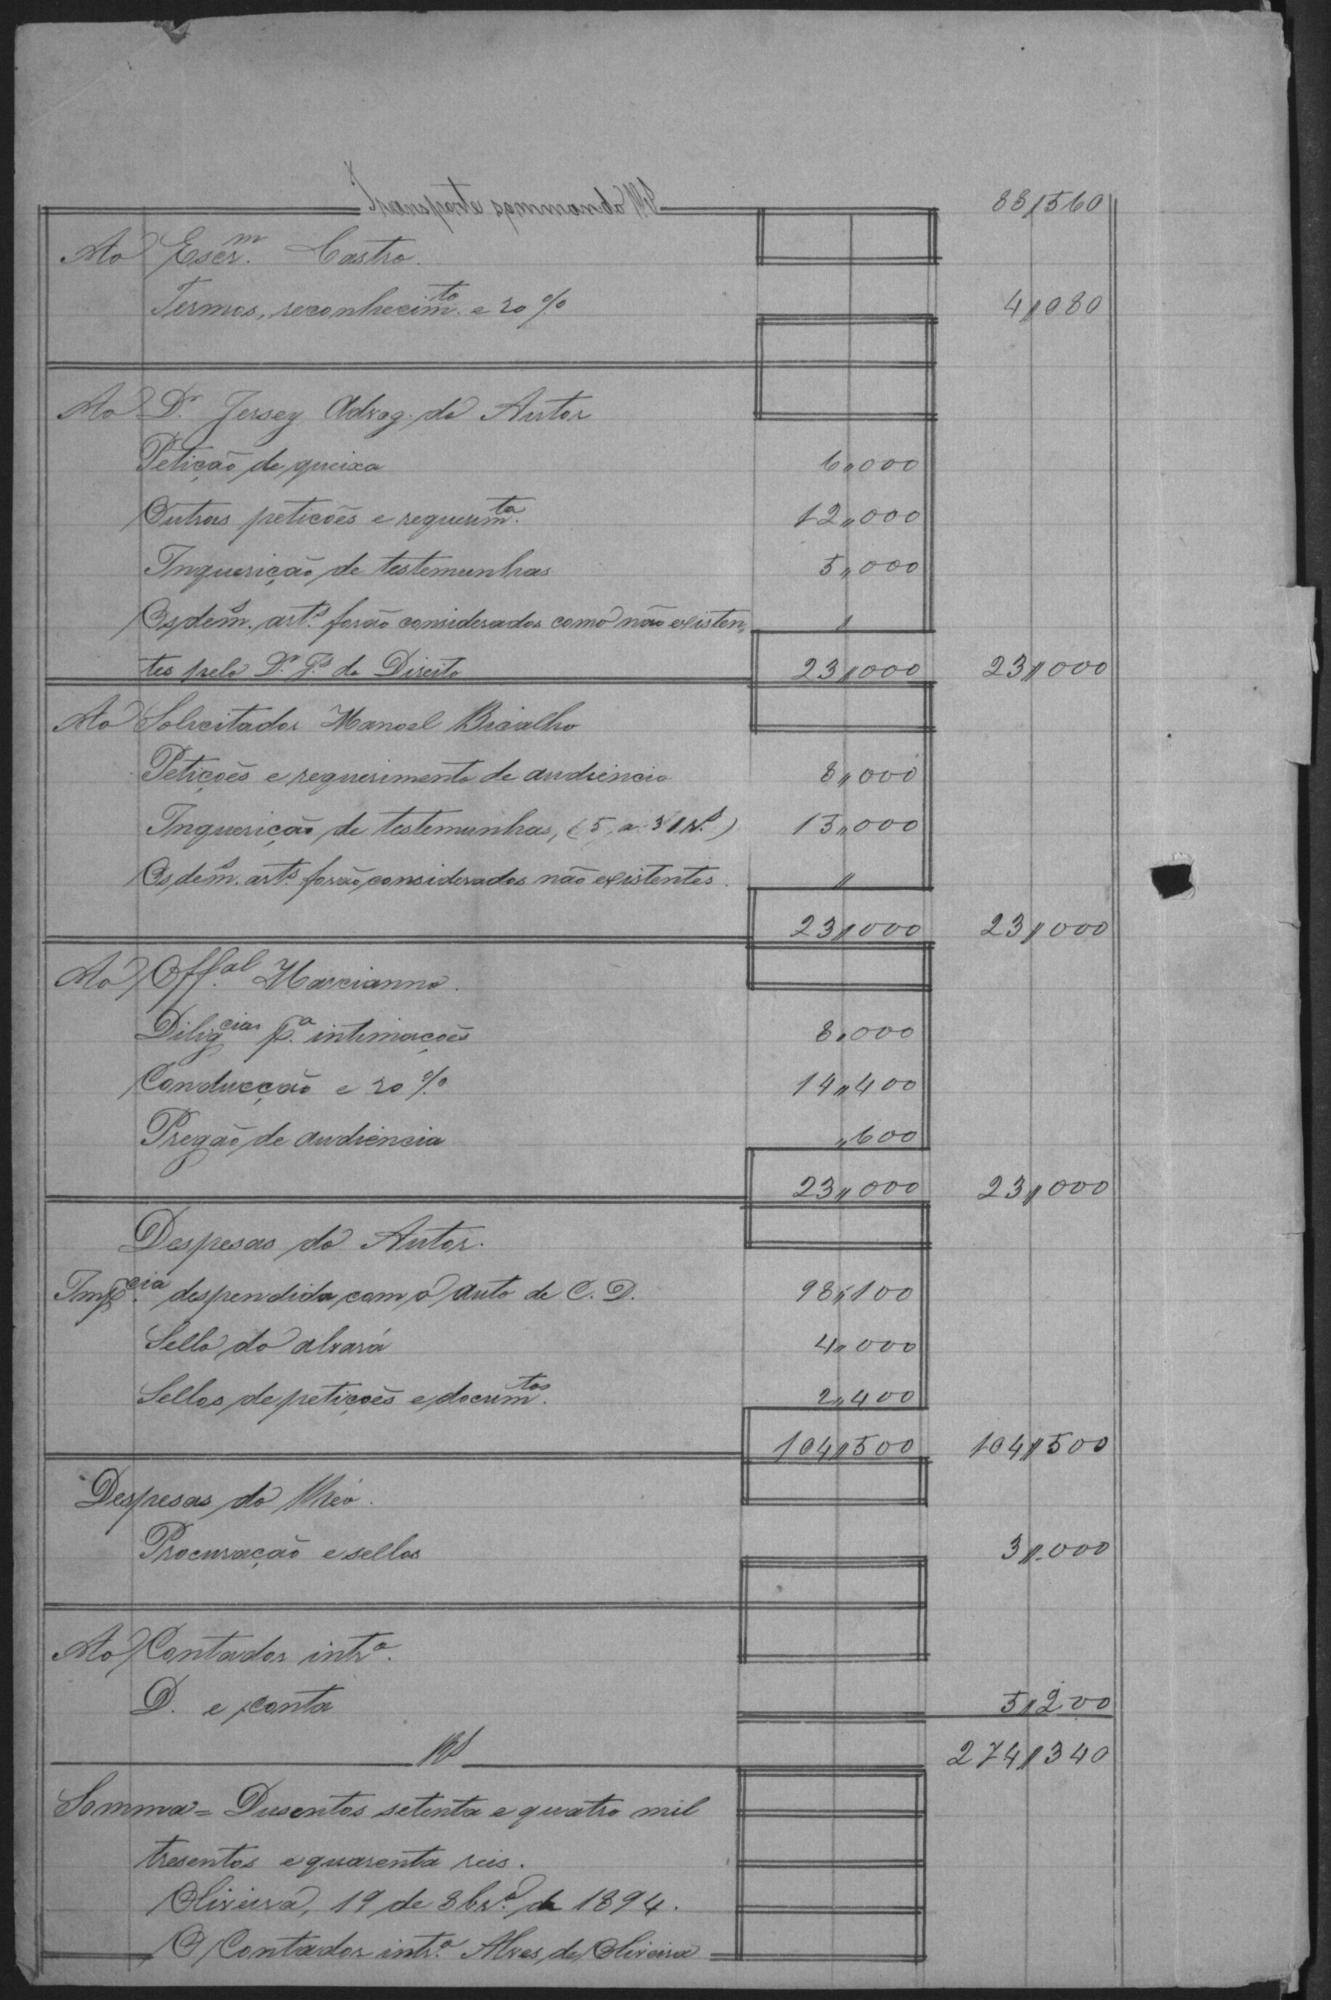 Transporte sommando Rs 88,,560
Ao Escr.m Castro.
Termos, reconhecim.to e 20% 4,,080
Ao D.r Jersey Advog. do Autor
Petição de queixa 6,,000
Outras petições e requerim.ta 12,,000
Inquerição de testemunhas 5,,000
Os dem.s art.s forão considerados como não existen, "
tes pelo D.r J.s de Direito 23,,000 23,,000
Ao Solicitador Manoel Bicalho
Petições e requerimento de audiencia 8,,000
Inquerição de testemunhas, (5, a 3 Rs.) 15,,000
Os dem.s art.s forão considerados não existentes. "
23,,000 23,,000
Ao Off.al Marcianno.
Dilig.cias p.a intimações 8,000
Conducção e 20%. 14,,400
Pregão de audiencia ,,600
23,,000 23,,000
Despesas do Autor.
Imp.cia despendida com o auto de C. D. 98,,100
Sello do alvará 4,,000
Sellos de petições e docum.tos 2,,400
104,,500 104,,500
Despesas do Réo.
Procuração e sellos 3,,000
Ao Contador int.o
D. e conta 5,,200
Rs 274,,340
Somma = Dusentos setenta e quatro mil
tresentos e quarenta reis.
Oliveira, 19 de 8br.o de 1894.
O Contador int.o Alves de Oliveira